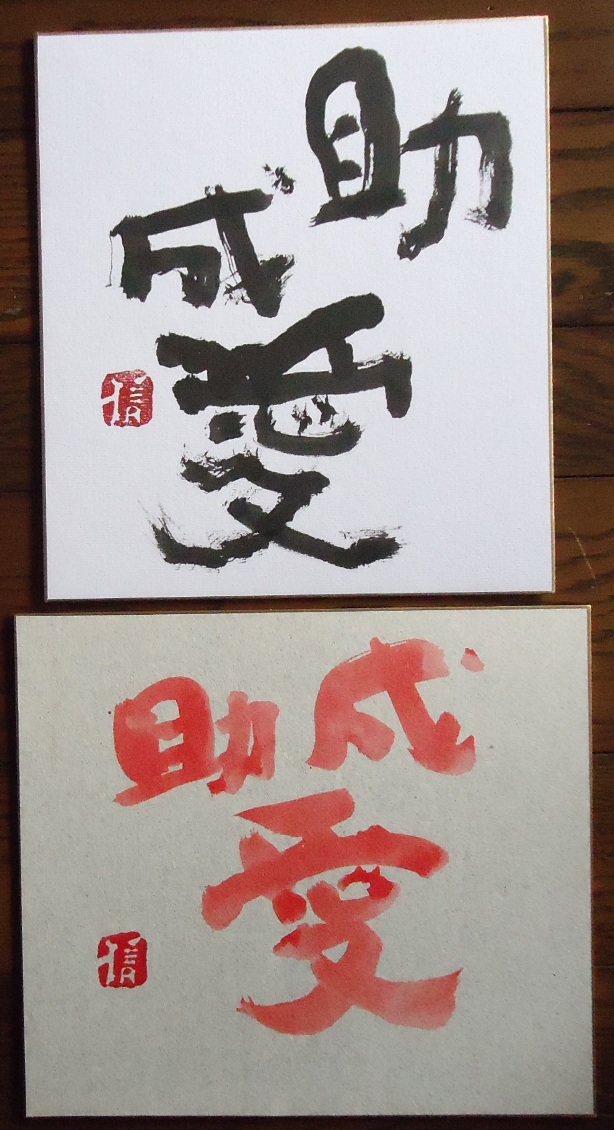 助
成
愛
信
助成
愛
信